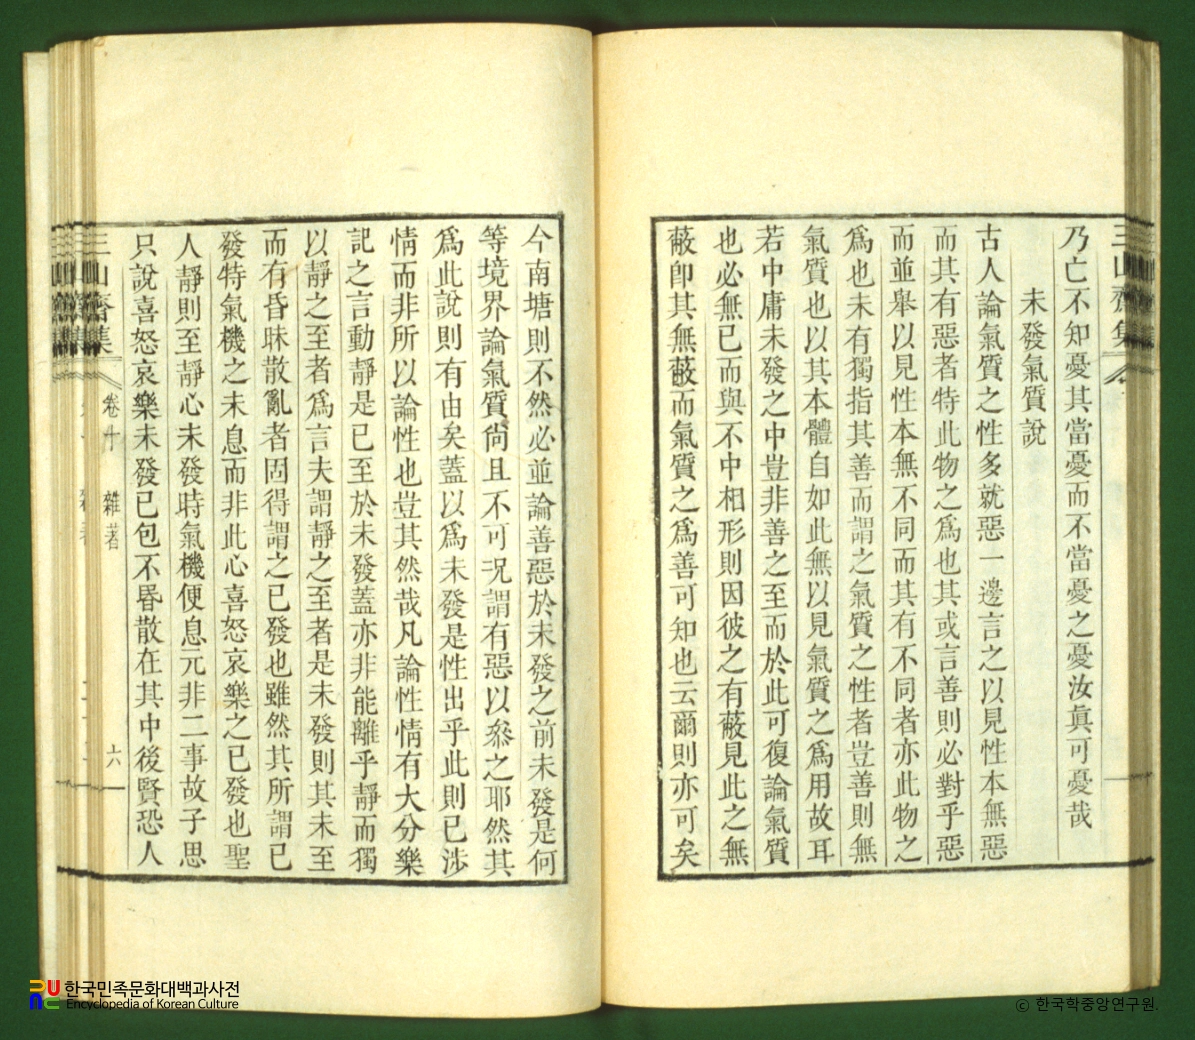 三山齋集
乃亡不知憂其當憂而不當憂之憂汝眞可憂哉
未發氣質說
古人論氣質之性多就惡一邊言之以見性本無惡
而其有惡者特此物之爲也其或言善則必對乎惡
而並舉以見性本無不同而其有不同者亦此物之
爲也未有獨指其善而謂之氣質之性者豈善則無
氣質也以其本體自如此無以見氣質之爲用故耳
若中庸未發之中豈非善之至而於此可復論氣質
也必無已而與不中相形則因彼之有蔽見此之無
蔽卽其無蔽而氣質之爲善可知也云爾則亦可矣
今南塘則不然必並論善惡於未發之前未發是何
等境界論氣質尙且不可况謂有惡以叅之耶然其
爲此說則有由矣蓋以爲未發是性出乎此則已涉
情而非所以論性也豈其然哉凡論性情有大分樂
記之言動靜是已至於未發蓋亦非能離乎靜而獨
以靜之至者爲言夫謂靜之至者是未發則其未至
而有昏昧散亂者固得謂之已發也雖然其所謂已
發特氣機之未息而非此心喜怒哀樂之已發也聖
人靜則至靜心未發時氣機便息元非二事故子思
只說喜怒哀樂未發已包不昬散在其中後賢恐人
三山齋集
卷十
雜著
六
한국민족문화대백과사전
Encyclopedia of Korean Culture
© 한국학중앙연구원.